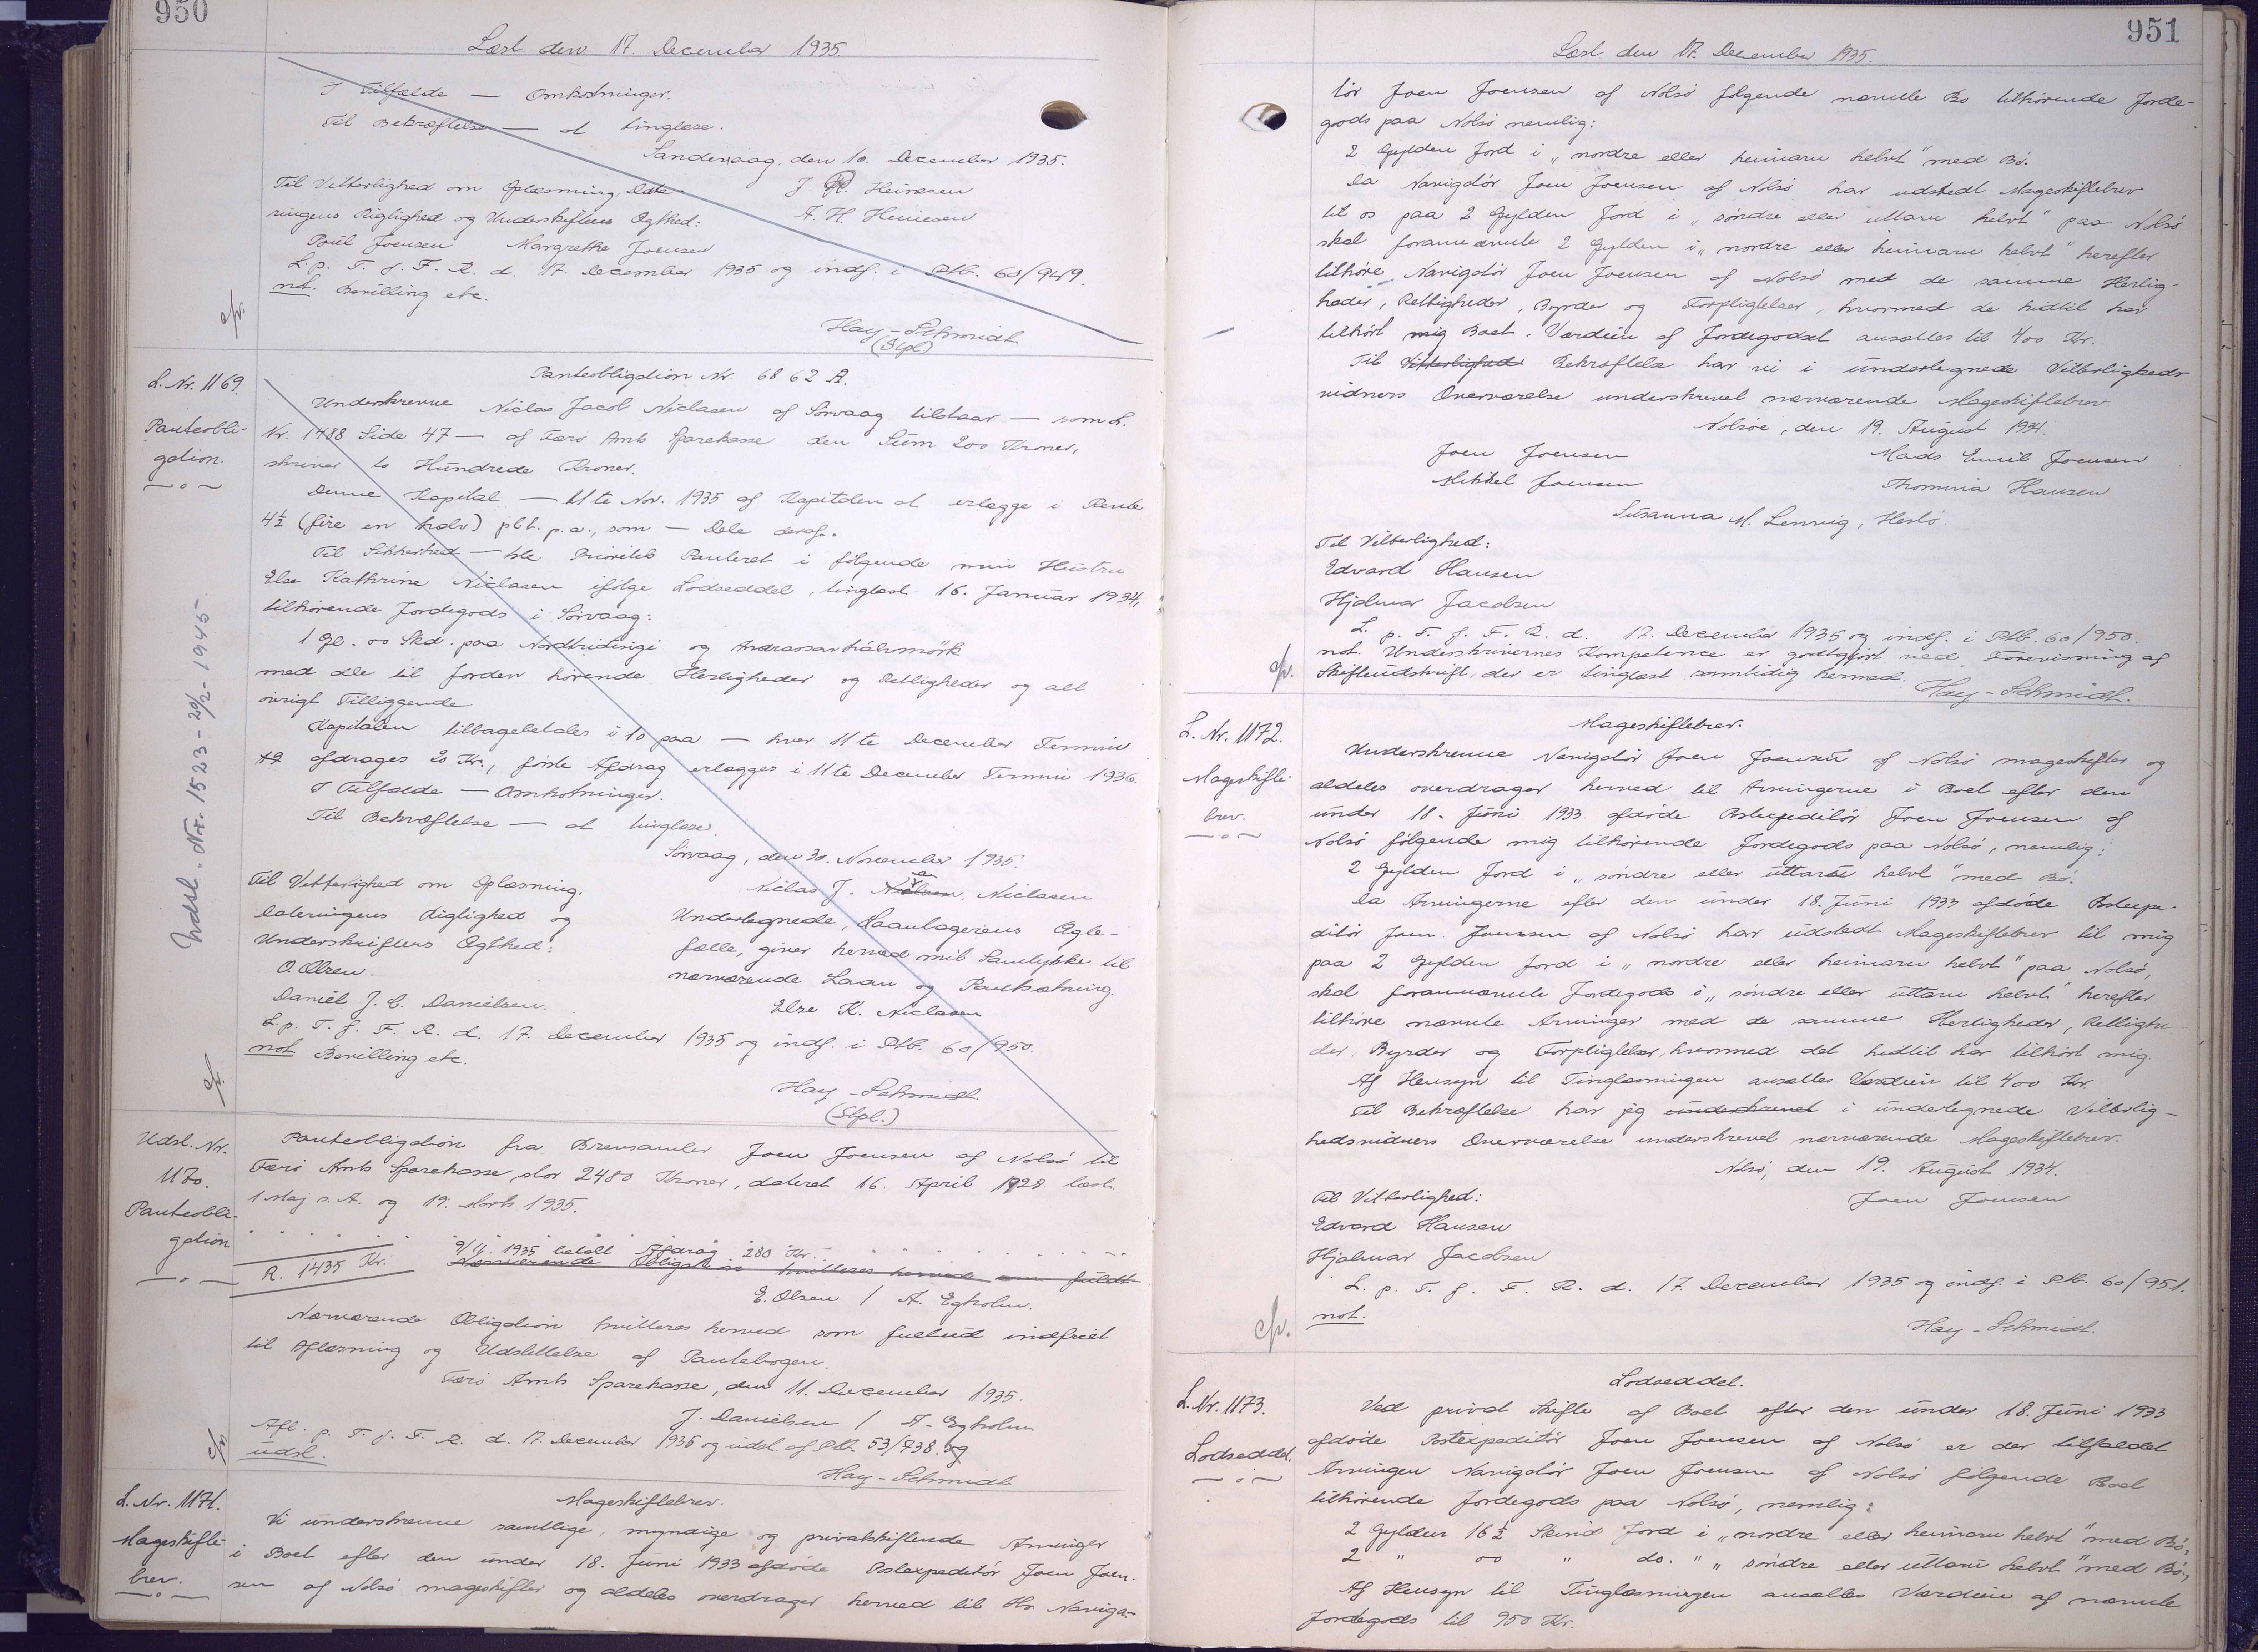 950
Læst den 17. December 1935.
I Tilfælde — Omkostninger.
Til Bekræftelse — at tinglæse.
Sandevaag, den 10. December 1935.
Til Vitterlighed om Oplæsning, Date-
J. R. Heinesen
ringens Rigtighed og Underskriftens Ægthed:
A. H. Heinesen
Poul Joensen Margrethe Joensen
L. p. T. f. F. R. d. 17. December 1935 og indf. i Ptb. 60/949.
not. Bevilling etc.
Hay-Schmidt
(Stpl)
L. Nr. 1169.
Panteobli-
gation.
Panteobligation Nr. 6862 A.
Underskrevne Niclas Jacob Niclasen af Sörvaag tilstaar — som L.
Nr. 1488 Side 47 — af Færø Amts Sparekasse den Sum 200 Kroner,
skriver to Hundrede Kroner.
Denne Kapital — 11te Nov. 1935 af Kapitalen at erlægge i Rente
4½ (fire en halv) pCt. p.a., som — Dele deraf.
Til Sikkerhed — 1ste Prioritets Panteret i følgende min Hustru
Else Kathrine Niclasen ifølge Lodseddel, tinglæst 16. Januar 1934,
tilhørende Jordegods i Sørvaag:
1 Gl. 00 Skd. paa Nordtridingi og
med alle til Jorden hørende Herligheder og Rettigheder og alt
øvrigt Tilliggende.
Kapitalen tilbagebetales i 10 paa — hver 11te December Termin
afdrages 20 Kr., første Afdrag erlægges i 11te December Termin 1936.
I Tilfælde — Omkostninger.
Til Bekræftelse — at tinglæse.
Sørvaag, den 30. November 1935.
Niclas J. Niclasen
Til Vitterlighed om Oplæsning,
Dateringens Rigtighed og
Underskriftens Ægthed:
O. Olsen.
Daniel J. C. Danielsen.
Undertegnede, Laantagerens Ægte-
fælle, giver herved mit Samtykke til
nærværende Laan og Pantsætning.
Else K. Niclasen
L. p. T. f. F. R. d. 17. December 1935 og indf. i Ptb. 60/950.
not. Bevilling etc.
Hay-Schmidt
(Stpl.)
Udsl. Nr. 1523 - 20/2 - 1945
Udsl. Nr.
1170.
Panteobli-
gation
Panteobligation fra Brevsamler Joen Joensen af Nolsø til
Færø Amts Sparekasse, stor 2480 Kroner, dateret 16. April 1928 læst
1 Maj s. A. og 19. Marts 1935.
9/11. 1935 betalt Afdrag 280 Kr.
R. 1435 Kr. Nærværende Obligation kvitteres herved som fuldt
E. Olsen / A. Egholm.
Nærværende Obligation kvitteres herved som fuldtud indfriet
til Aflæsning og Udslettelse af Pantebogen.
Færø Amts Sparekasse, den 11. December 1935.
J. Danielsen / A. Egholm
Afl. p. T. f. F. R. d. 17. December 1935 og udsl. af Ptb. 53/738. og
udsl.
Hay-Schmidt
L. Nr. 1171.
Mageskifte-
brev.
Mageskiftebrev.
Vi underskrevne samtlige, myndige og privatskiftende Arvinger
i Boet efter den under 18. Juni 1933 afdøde Postexpeditör Joen Joen-
sen af Nolsø mageskifter og aldeles overdrager herved til Hr. Naviga-
951
Læst den 17. December 1935.
tör Joen Joensen af Nolsø følgende nævnte Bo tilhørende Jorde-
gods paa Nolsø nemlig:
2 Gylden Jord i „nordre eller heimaru helvt" med Bø.
Da Navigatör Joen Joensen af Nolsø har udstedt Mageskiftebrev
til os paa 2 Gylden Jord i „söndre eller uttaru helvt" paa Nolsø
skal forannævnte 2 Gylden i „nordre eller heimaru helvt" herefter
tilhøre Navigatör Joen Joensen af Nolsø med de samme Herlig-
heder, Rettigheder, Byrder og Forpligtelser, hvormed de hidtil har
tilhørt mig Boet. Værdien af Jordegodset ansættes til 400 Kr.
Til Vitterlighed Bekræftelse har vi i undertegnede Vitterligheds-
vidners Overværelse underskrevet nærværende Mageskiftebrev.
Nolsøe, den 19. August 1934.
Joen Joensen Mads Emil Joensen
Mikkel Joensen Thomina Hansen
Susanna M. Lennig, Hestø.
Til Vitterlighed:
Edvard Hansen
Hjalmar Jacobsen
L. p. T. f. F. R. d. 17. December 1935 og indf. i Ptb. 60/950.
not. Underskrivernes Kompetence er godtgjort ved Forevisning af
Skifteudskrift, der er tinglæst samtidig hermed.
Hay-Schmidt.
L. Nr. 1172.
Mageskifte-
brev.
Mageskiftebrev.
Underskrevne Navigatör Joen Joensen af Nolsø mageskifter og
aldeles overdrager herved til Arvingerne i Boet efter den
under 18. Juni 1933 afdøde Postexpeditör Joen Joensen af
Nolsø følgende mig tilhørende Jordegods paa Nolsø, nemlig:
2 Gylden Jord i „söndre eller uttaru helvt" med Bø.
Da Arvingerne efter den under 18. Juni 1933 afdøde Postexpe-
ditör Joen Joensen af Nolsø har udstedt Mageskiftebrev til mig
paa 2 Gylden Jord i „nordre eller heimaru helvt" paa Nolsø,
skal forannævnte Jordegods i „söndre eller uttaru helvt" herefter
tilhøre nævnte Arvinger med de samme Herligheder, Rettighe-
der, Byrder og Forpligtelser, hvormed det hidtil har tilhørt mig.
Af Hensyn til Tinglæsningen ansættes Værdien til 400 Kr.
Til Bekræftelse har jeg underskrevet i undertegnede Vitterlig-
hedsvidners Overværelse underskrevet nærværende Mageskiftebrev.
Nolsø, den 19. August 1934.
Til Vitterlighed:
Joen Joensen
Edvard Hansen
Hjalmar Jacobsen
L. p. T. f. F. R. d. 17. December 1935 og indf. i Ptb. 60/951.
not.
Hay-Schmidt.
L. Nr. 1173.
Lodseddel.
Lodseddel.
Ved privat Skifte af Boet efter den under 18. Juni 1933
afdøde Postexpeditör Joen Joensen af Nolsø er der tilfaldet
Arvingen Navigatör Joen Joensen af Nolsø følgende Boet
tilhørende Jordegods paa Nolsø, nemlig:
2 Gylden 16½ Skind Jord i „nordre eller heimaru helvt" med Bø,
2 " 00 " do. " „söndre eller uttaru helvt" med Bø,
Af Hensyn til Tinglæsningen ansættes Værdien af nævnte
Jordegods til 950 Kr.